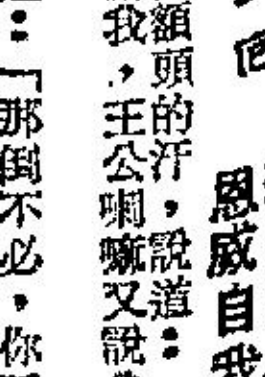 恩威自我
額頭的汗，說道：
我，王公又說
：「那倒不必，你